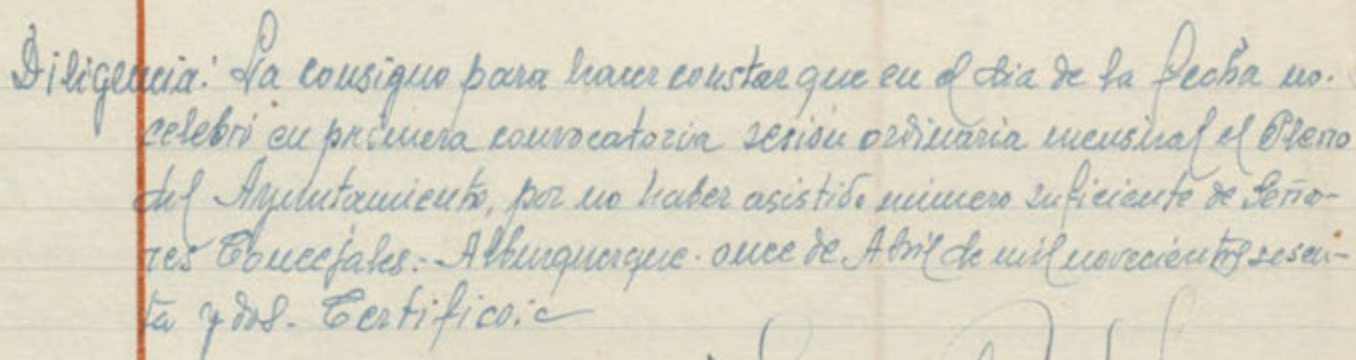 Diligencia: La consigno para hacer constar que en el dia de la fecha no
celebró en primera convocatoria sesión ordinaria mensual el Pleno
del Ayuntamiento, por no haber asistido número suficiente de Seño-
res Concejales.- Alburquerque. once de Abril de mil novecientos sesen-
ta y dos.- Certifico:-